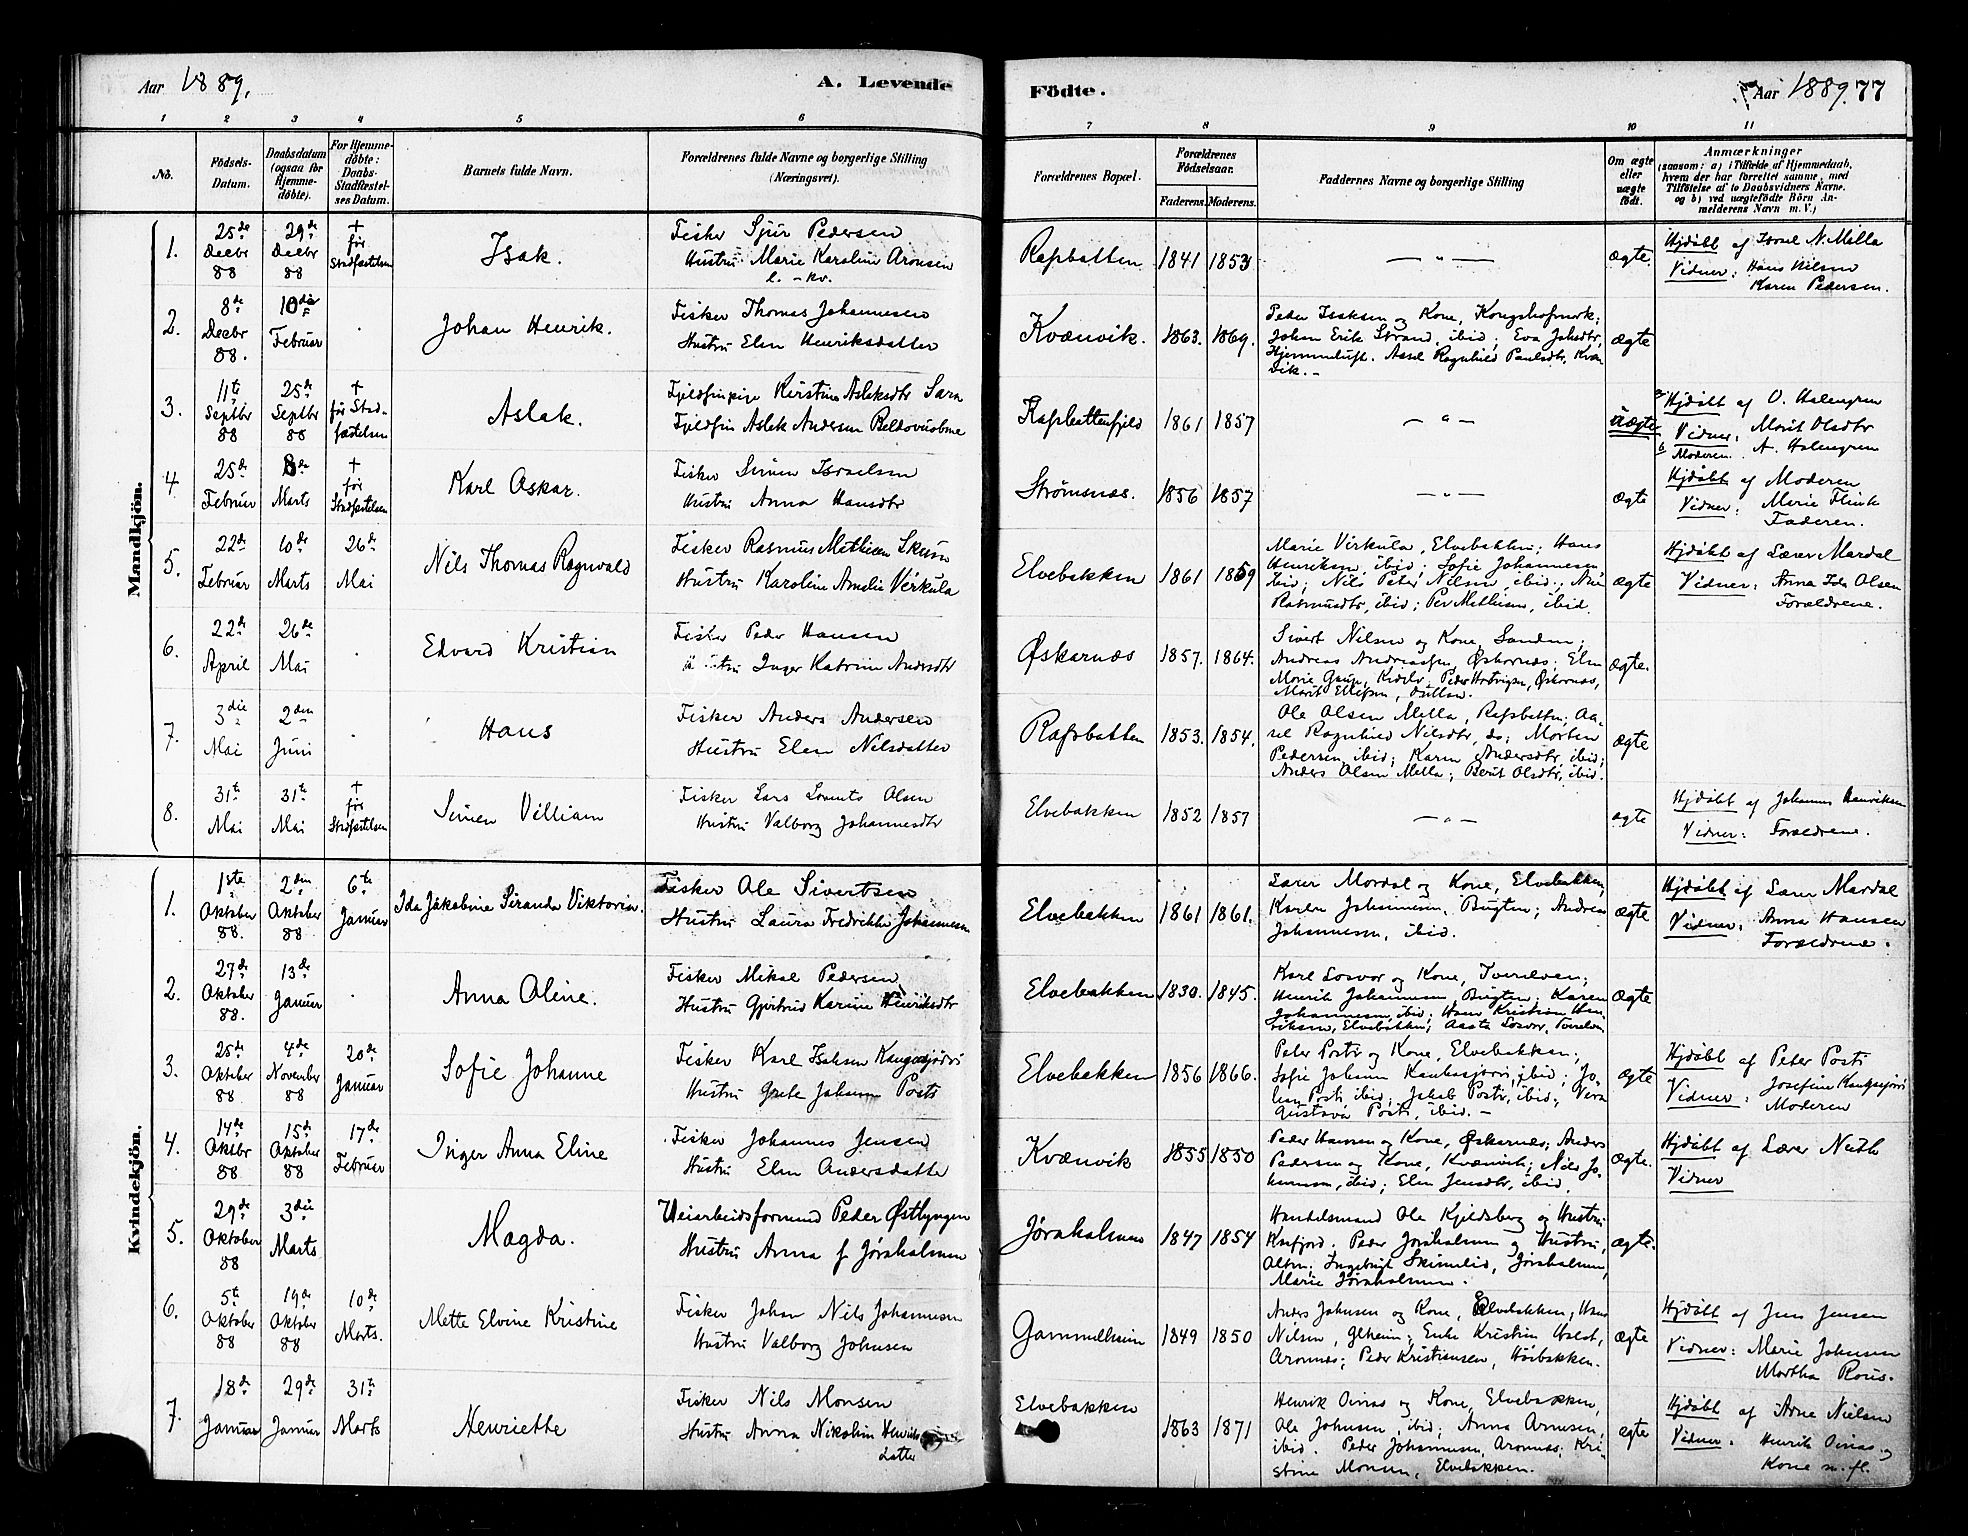 Aar 1889.
A. Levende
Födte.
Aar 1889. 77
1 2 3 4 5 6 7 8 9 10 11
No.
Födsels-
Datum.
Daabsdatum
(ogsaa for
Hjemme-
döbte).
For Hjemme-
döbte:
Daabs-
Stadfæstel-
ses Datum.
Barnets fulde Navn.
Forældrenes fulde Navne og borgerlige Stilling
(Næringsvei).
Forældrenes Bopæl.
Forældrenes
Födselsaar.
Faderens. Moderens.
Faddernes Navne og borgerlige Stilling
Om ægte
eller
uægte
födt.
Anmærkninger
(saasom: a) i Tilfælde af Hjemmedaab,
hvem der har forrettet samme, med
Tilföielse af to Daabsvidners Navne,
og b) ved uægtefödte Börn An-
melderens Navn m. V.)
Mandkjön.
1.
25de
Decbr
88
29de
Decbr
88
+
før
Stadfæstelsen
Isak.
Fisker Sjur Pedersen
Hustru Marie Karoline Aronsen
l. - kv.
Rafsbatten
1841 1853
— " —
ægte.
Hjdöbt af Isrel N. Mella
Vidner: Hans Nilsen
Karen Pedersen.
2.
8de
Decbr
88.
10de
Februar
Johan Henrik.
Fisker Thomas Johannesen
Hustru Elen Henriksdatter
Kvænvik.
1863. 1869.
Peder Isaksen og Kone, Kongshofmrk;
Johan Erik Strand, ibid; Eva Johsdtr,
Hjemmeluft. Assel Ragnhild Paulsdtr, Kvæn-
vik. -
ægte
3.
11te
Septbr
88
25de
Septbr
88
+
før Stad-
fæstelsen
Aslak.
Fjeldfinpige Kirstine Aslaksdtr Sara
Fjeldfin Aslak Andersen
Rafsbattenfjeld
1861 1857
— " —
uægte
a Hjdöbt af O. Halengren
Vidner: Marit Olsdtr
b Moderen. A. Halengren
4.
25de
Februar
8de
Marts
+
før
Stadfæstelsen
Karl Oskar.
Fisker Simen Israelsen
Hustru Anna Hansdtr
Strømsnæs.
1856 1857
— " —
ægte
Hjdöbt af Moderen
Vidner: Marie Flink
Faderen.
5.
22de
Februar
10de
Marts
26de
Mai
Nils Thomas Ragnvald
Fisker Rasmus Mathisen Skum
Hustru Karoline Amalie Virkula
Elvebakken
1861 1859
Marie Virkula, Elvebakken; Hans
Henriksen ibid; Sofie Johannesen,
ibid; Nils Peter Nilsen, ibid;
Rasmusdtr, ibid; Per Mathisen, ibid.
ægte
Hjdöbt af Lærer Mardal
Vidner: Anna Ida Olsen
Forældrene.
6.
22de
April
26de
Mai
Edvard Kristian
Fisker Peder Hansen
Hustru Inger Katrine Andersdtr
Øskarnæs
1857. 1864.
Sivert Nilsen og Kone, Sanden;
Andreas Andreassen, Øskarnæs; Elen
Marie Gaup, Peder Hartvigsen, Øskarnæs,
Marit Ellefsen,
ægte.
7.
3die
Mai
2den
Juni
Hans
Fisker Anders Andersen
Hustru Elen Nilsdatter
Rafsbatten
1853. 1854.
Ole Olsen Mella, Rafsbatten; Aa-
sel Ragnhild Nilsdtr, do; Morten
Pedersen ibid; Karen Andersdtr, ibid;
Anders Olsen Mella; Berit Olsdtr, ibid.
ægte
8.
31te
Mai
31te
Mai
+
før
Stadfæstelsen
Simen Villiam
Fisker Lars Lorents Olsen
Hustru Valborg Johannesdtr
Elvebakken
1852 1857
— " —
ægte
Hjdöbt af Johannes Henriksen
Vidner: Forældrene.
Kvindekjön.
1.
1ste
Oktober
88.
2den
Oktober
88
6te
Januar
Ida Jakobine Siranda Viktoria.
Fisker Ole Sivertsen
Hustru Laura Fredrikke Johannesen
Elvebakken
1861 1861.
Lærer Mardal og Kone, Elvebakken,
Karen Johannesen, Bugten; Andreas
Johannesen, ibid.
ægte
Hjdöbt af Lærer Mardal
Vidner: Anna Hansen
Forældrene.
2.
27de
Oktober
88.
13de
Januar
Anna Oline.
Fisker Mikal Pedersen
Hustru Gjertrud Karine Henriksdtr
Elvebakken
1830. 1845.
Karl Losvar og Kone, Tverelven;
Henrik Johannesen, Bugten; Karen
Johannesen, ibid; Hans Kristian Hen-
riksen, Elvebakken; Aasta Losvar, Tverelven
ægte
3.
25de
Oktober
88
4de
November
88
20de
Januar
Sofie Johanne
Fisker Karl Isaksen Kangasjärvi
Hustru Grete Johansen Posti
Elvebakken
1856 1866.
Peter Posti og Kone, Elvebakken;
Sofie Johnsen ibid; Jo-
han Posti ibid; Jakob Posti, ibid;
Gustava Posti, ibid. -
ægte
Hjdöbt af Peter Posti
Vidner: Josefine Kangasjärvi
Moderen
4.
14de
Oktbr
88
15de
Oktober
88
17de
Februar
Inger Anna Eline
Fisker Johannes Jensen
Hustru Elen Andersdatter
Kvænvik
1855 1850
Peder Hansen og Kone, Øskarnæs; Anders
Pedersen og Kone, Kvænvik; Nils Jo-
hannesen, ibid; Elen Jensdtr, ibid.
ægte.
Hjdöbt af Lærer
Vidner
5.
29de
Oktober
88
3die
Marts
Magda.
Veiarbeidsformand Peder Østlyngen
Hustru Anna f Jøraholmen
Jøraholmen
1847 1854
Handelsmand Ole Kjeldsberg og Hustru
Kaafjord. Peder Jøraholmen og Hustru,
Alten; Ingeborg Skimelid, Jøraholmen,
Marie Jøraholmen.
ægte.
6.
5te
Oktober
88
19de
Oktober
88
10de
Marts.
Mette Elvine Kristine
Fisker Johan Nils Johannesen
Hustru Valborg Johnsen
Gammelheim
1849 1850
Anders Johnsen og Kone, Elvebakken, Hans
Nilsen, Kristine Holst,
Aronnæs; Peder Kristiansen, Höibakken.
ægte
Hjdöbt af Jens Jensen
Vidner: Marie Johnsen
Martha
7.
18de
Januar
29de
Januar
31te
Marts
Henriette
Fisker Nils Monsen
Hustru Anna Nikoline Henriks-
datter
Elvebakken
1863 1871
Henrik Oinas og Kone, Elvebakken,
Ole Johnsen, ibid; Anna Arnesen,
ibid. Peder Johannesen, Aronnæs; Kri-
stine Monsen, Elvebakken.
ægte
Hjdöbt af Arne Nielsen
Vidner: Henrik Oinas og
Kone m. fl.